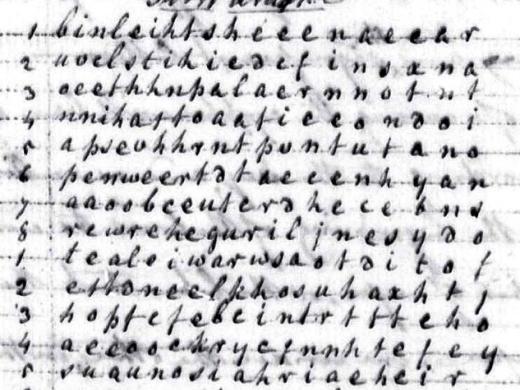 1 binleihtsheeenaeear
2 uoelstihiedefinsana
3 oeethhnpalaernnotnt
4 nnihattoaatieeondoi
5 apseohhrntpvntutano
6 penweertdtaeeenhyan
7 aaoobeeuterdheeebns
8 rewreheguriljnesydo
1 tealoiwarwsaotditof
2 ettdneelkhosuhaxhtj
3 hoptefebeintrttteho
4 aeeoochrycfnnhtefey
5 suaunosiahriaeheir